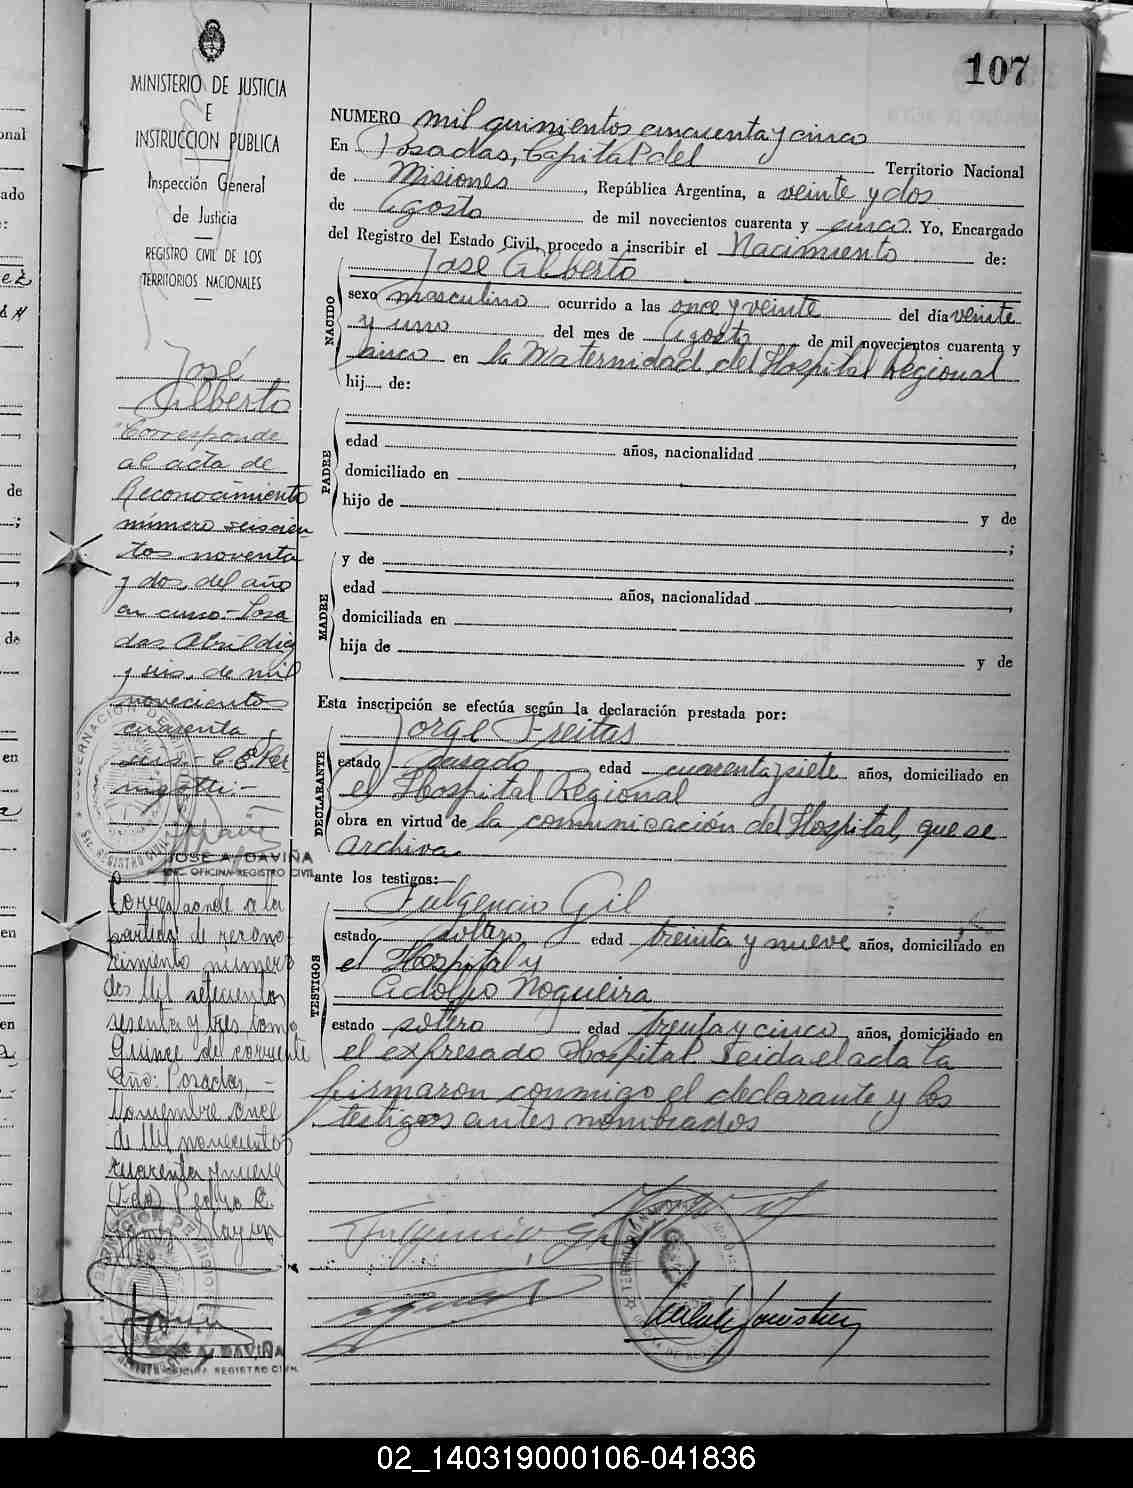 107
MINISTERIO DE JUSTICIA
E
INSTRUCCION PUBLICA
Inspección General
de Justicia
REGISTRO CIVIL DE LOS
TERRITORIOS NACIONALES
José
Alberto
Corresponde
al acta de
Reconocimiento
número seiscien
tos noventa
y dos, del año
en curso.- Posa
das Abril diez
y seis, de mil
novecientos
cuarenta y
seis.-
JOSE A. DAVIÑA
ENC. OFICINA REGISTRO CIVIL
Corresponde a la
partida de recono-
cimiento número
dos mil setecientos
sesenta y tres tomo
quince del corriente
año: Posadas,
Noviembre once
de mil novecientos
cuarenta y nueve
JOSE A. DAVIÑA
OFICINA REGISTRO CIVIL
NUMERO mil quinientos cincuenta y cinco
En Posadas, Capital del Territorio Nacional
de Misiones, República Argentina, a veinte y dos
de Agosto de mil novecientos cuarenta y cinco. Yo, Encargado
del Registro del Estado Civil, procedo a inscribir el Nacimiento de:
NACIDO
José Alberto
sexo masculino ocurrido a las once y veinte del día veinte
y uno del mes de Agosto de mil novecientos cuarenta y
cinco en la Maternidad del Hospital Regional
hij..... de:
PADRE
edad años, nacionalidad
domiciliado en
hijo de y de
;
MADRE
y de
edad años, nacionalidad
domiciliada en
hija de y de
Esta inscripción se efectúa según la declaración prestada por:
DECLARANTE
Jorge Freitas
estado casado edad cuarenta y siete años, domiciliado en
el Hospital Regional
obra en virtud de la comunicación del Hospital, que se
archiva.
ante los testigos:
TESTIGOS
Fulgencio Gil
estado soltero edad treinta y nueve años, domiciliado en
el Hospital y
Adolfo Nogueira
estado soltero edad treinta y cinco años, domiciliado en
el expresado Hospital. Leida el acta la
firmaron conmigo el declarante y los
testigos antes nombrados
Fulgencio Gil
02_140319000106-041836